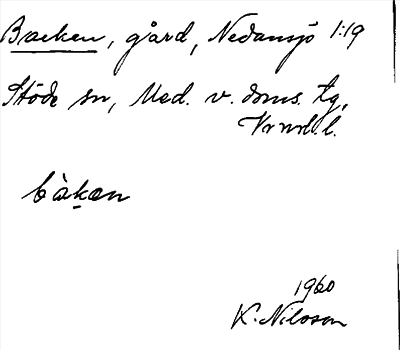 Backen, gård, Nedansjö 1:19
Stöde sn, Med. v. doms. tg,
Vrnrl. l.
bàk̮æn
1960
K. Nilsson